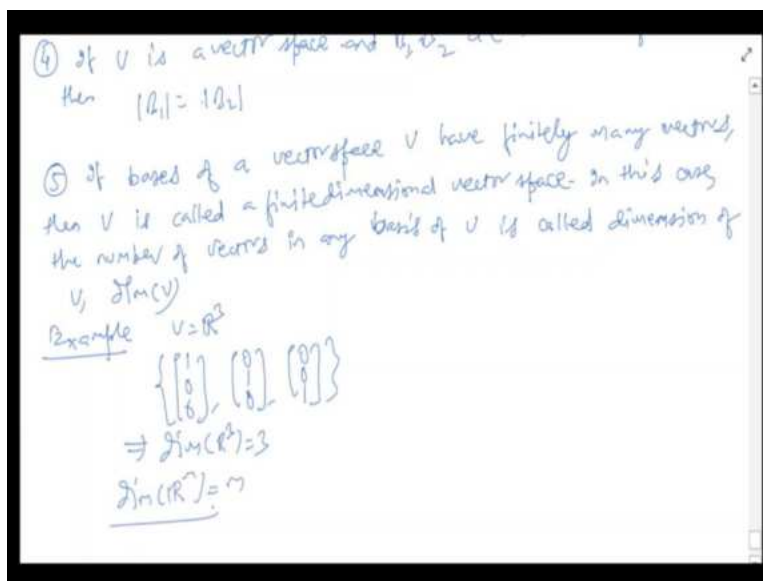 ④ If V is a vector space and B1, B2
then |B1| = |B2|
⑤ If bases of a vector space V have finitely many vectors,
then V is called a finite dimensional vector space. In this case,
the number of vectors in any basis of V is called dimension of
V, dim(V)
Example V = ℝ³
{[1 0 0], [0 1 0], [0 0 1]}
⇒ dim(ℝ³) = 3
dim(ℝⁿ) = n